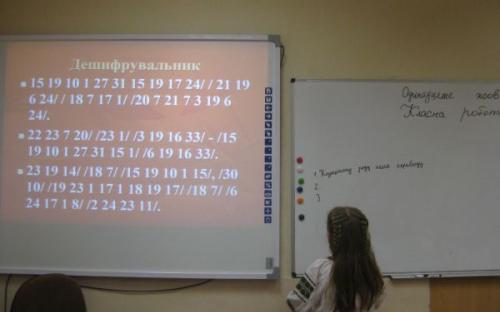 Дешифрувальник
15 19 10 1 27 31 15 19 17 24/ / 21 19
6 24/ / 18 7 17 1/ /20 7 21 7 3 19 6
24/.
22 23 7 20/ /23 1/ /3 19 16 33/ - /15
19 10 1 27 31 15 1/ /6 19 16 33/.
23 19 14/ /18 7/ /15 19 10 1 15/, /30
10/ /19 23 1 17 1 18 19 17/ /18 7/ /6
24 17 1 8/ /2 24 23 11/.
Класна робота
1.
2.
3